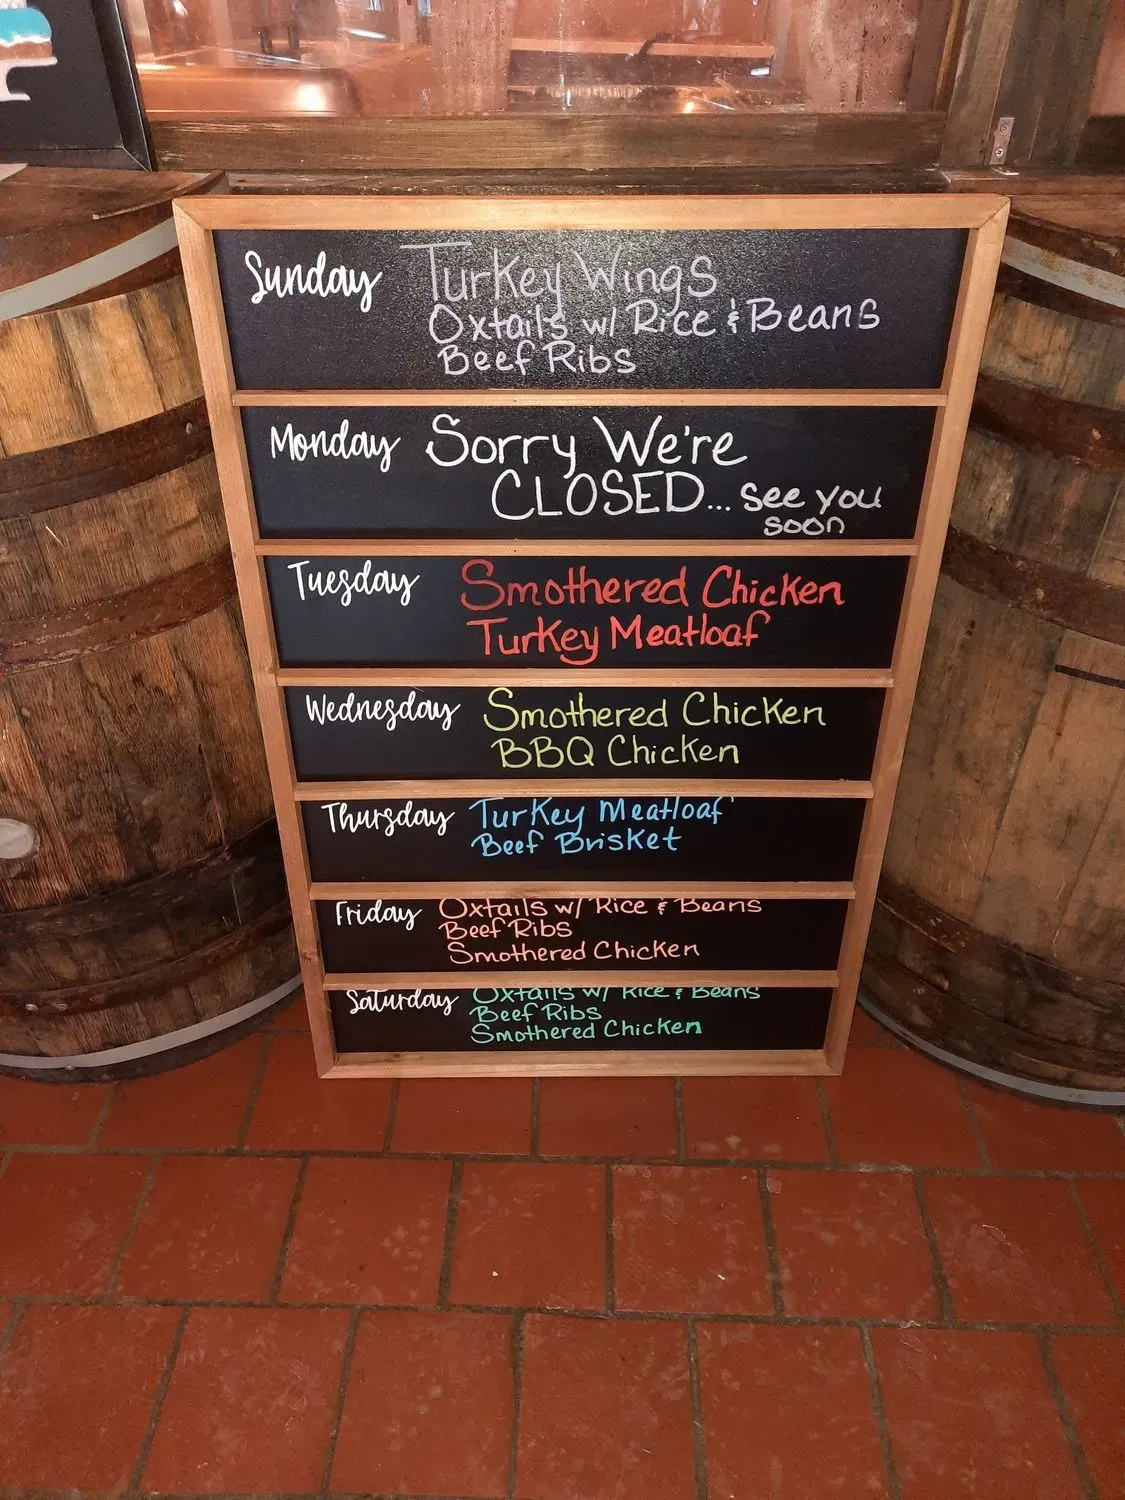 Sunday
Turkey Wings
Oxtails w/ Rice & Beans
Beef Ribs
Monday
Sorry We're
CLOSED... see you
soon
Tuesday
Smothered Chicken
Turkey Meatloaf
Wednesday
Smothered Chicken
BBQ Chicken
Thursday
Turkey Meatloaf
Beef Brisket
Friday
Oxtails w/ Rice & Beans
Beef Ribs
Smothered Chicken
Saturday
Oxtails w/ Rice & Beans
Beef Ribs
Smothered Chicken